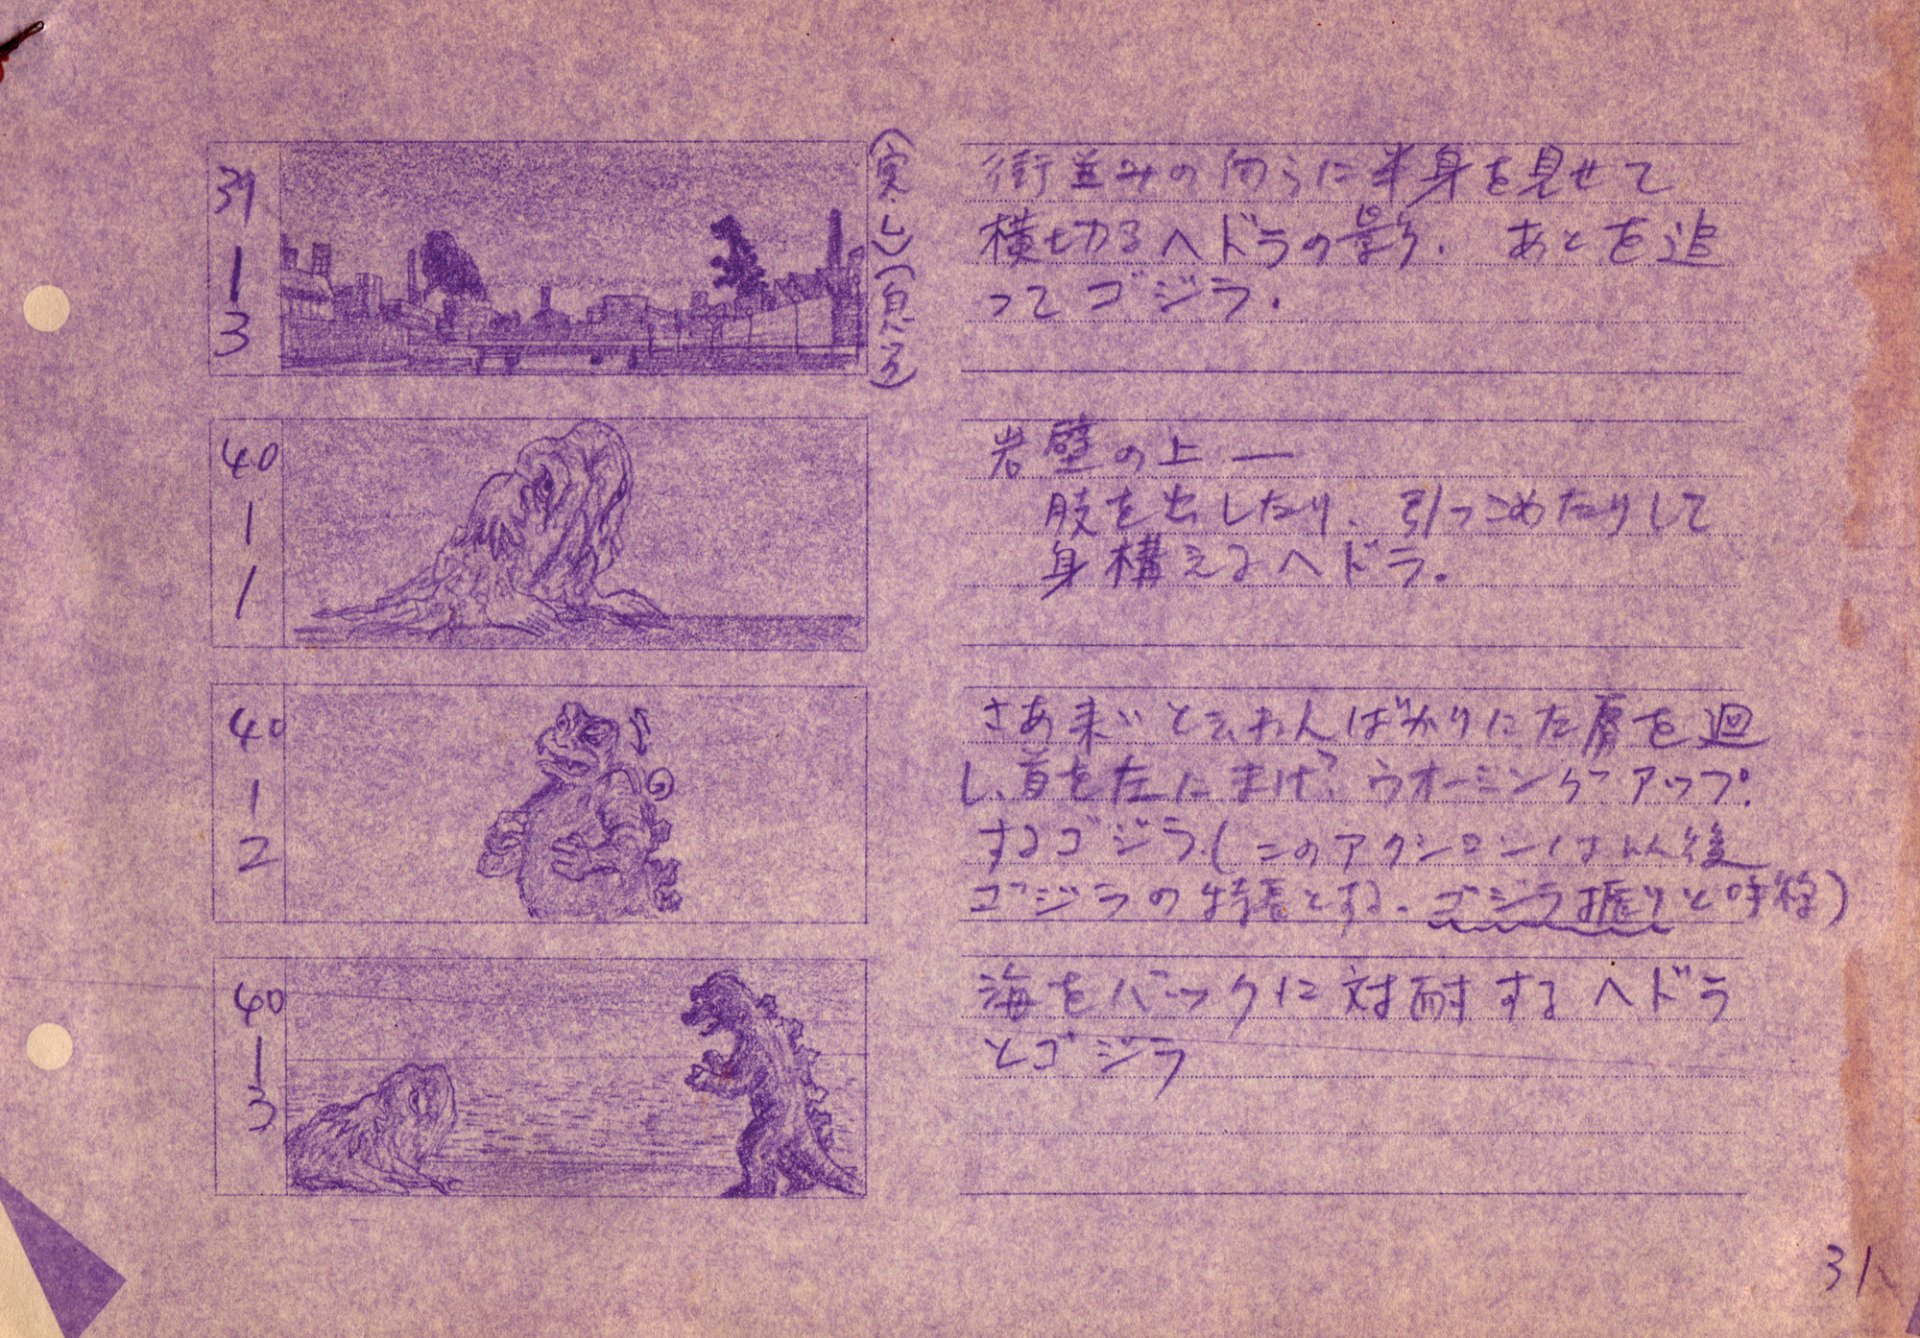 39
1
3
(実.し)(見た)
街並みの向うに半身を見せて
横切るヘドラの影。 あとを追
ってゴジラ.
40
1
1
岩壁の上 ―
肢を出したり、引っこめたりして
身構えるヘドラ。
40
1
2
さあ来いと云わんばかりに左肩を廻
し、首を左にまげ、ウオーミングアップ
するゴジラ.(このアクションは以後
ゴジラの特長とする. ゴジラ振りと呼称)
40
1
3
海をバックに対耐するヘドラ
とゴジラ
31